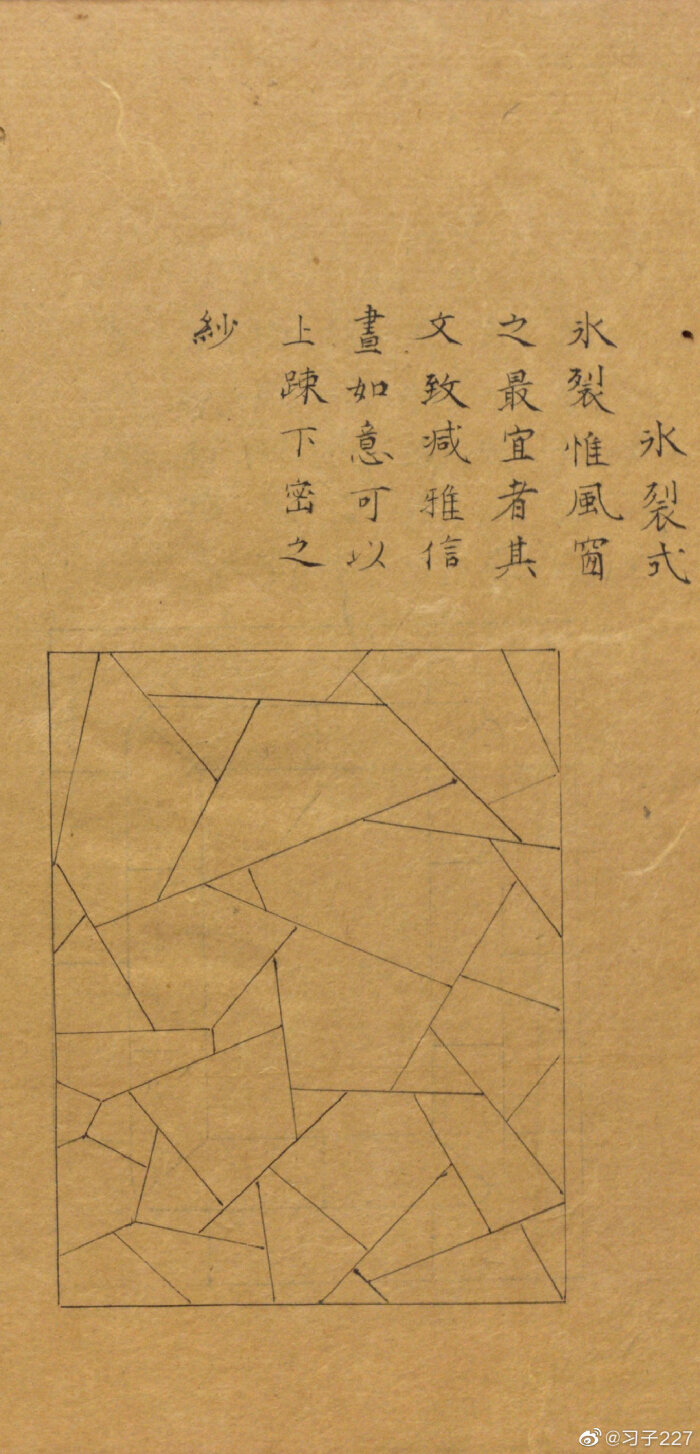 氷裂式
氷裂惟風窗
之最宜者其
文致减雅信
畫如意可以
上踈下密之
紗
@习子227